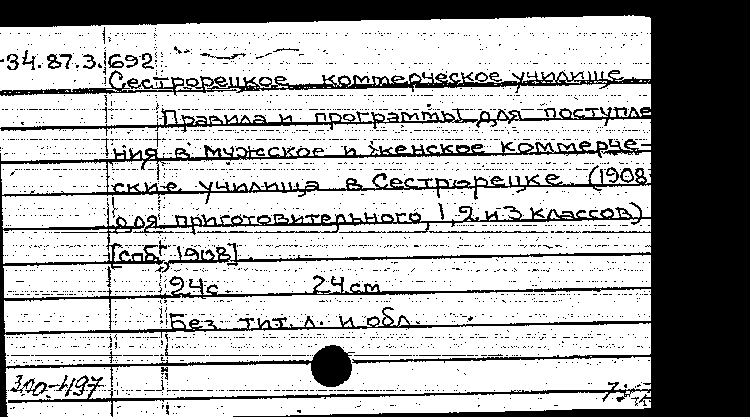 34.87.3.692
Сестрорецкое коммерческое училище
Правила и программы для поступле
ния в мужское и женское коммерче-
ские училища в Сестрорецке (1908
для приготовительного, 1, 2 и 3 классов)
[спб, 1908]
24с. 24см
Без тит. л. и обл.
300-497